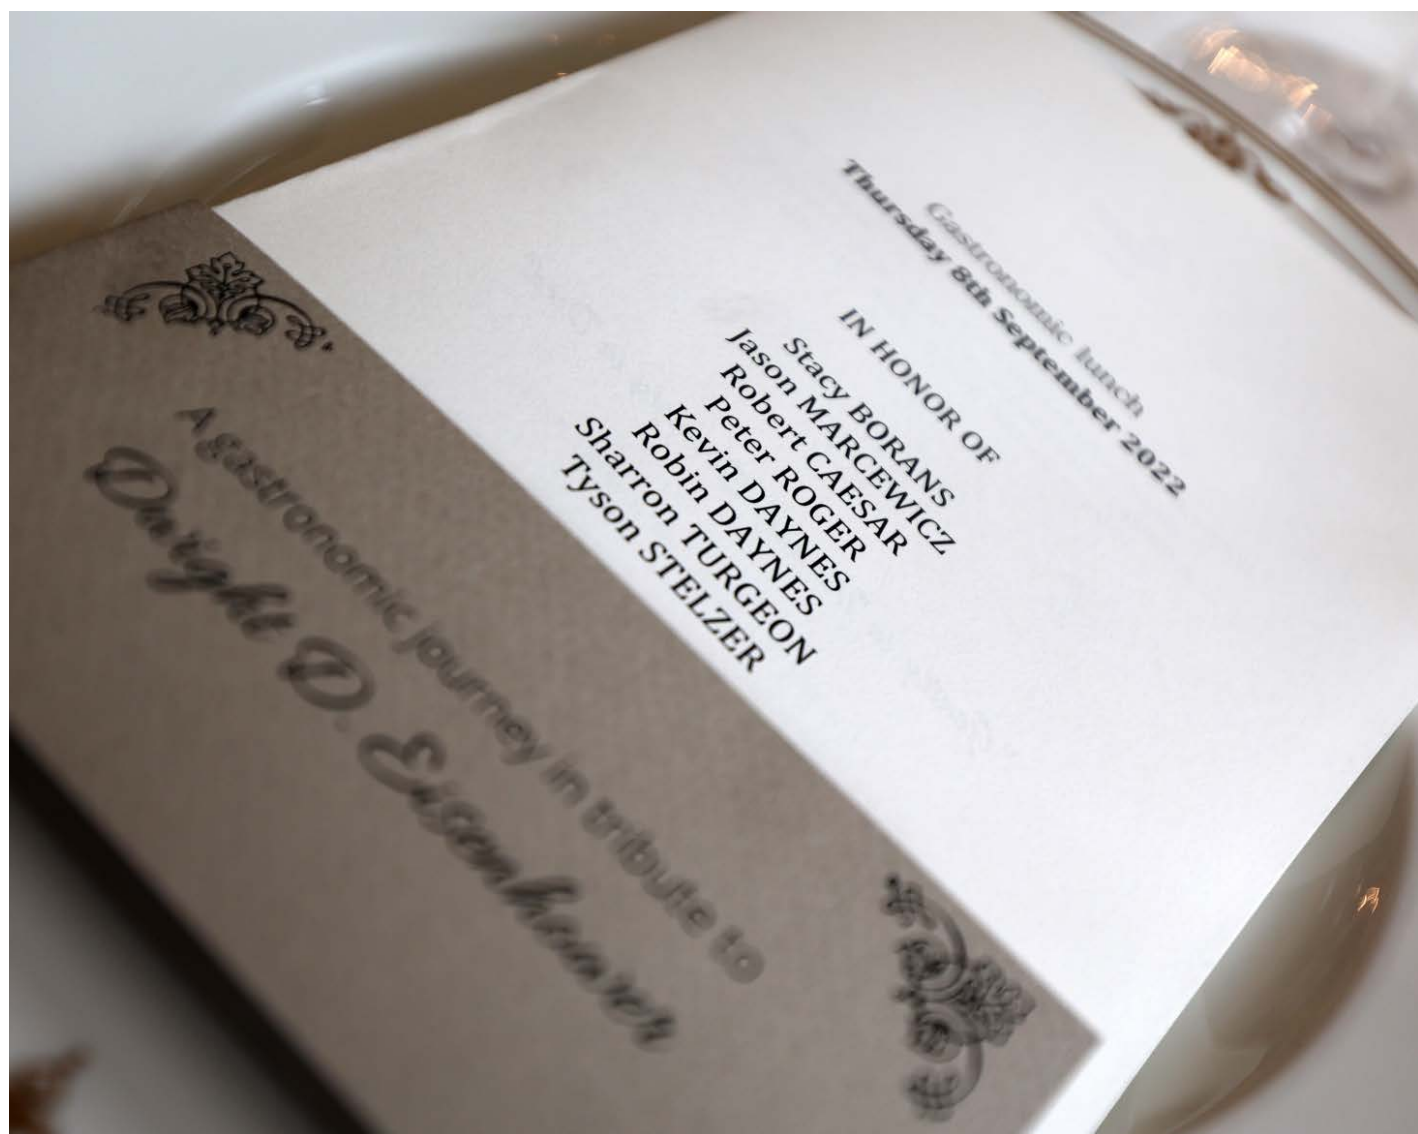 Gastronomic lunch
Thursday 8th September 2022
IN HONOR OF
Stacy BORANS
Jason MARCEWICZ
Robert CAESAR
Peter ROGER
Kevin DAYNES
Robin DAYNES
Sharron TURGEON
Tyson STELZER
A gastronomic journey in tribute to
Dwight D. Eisenhower